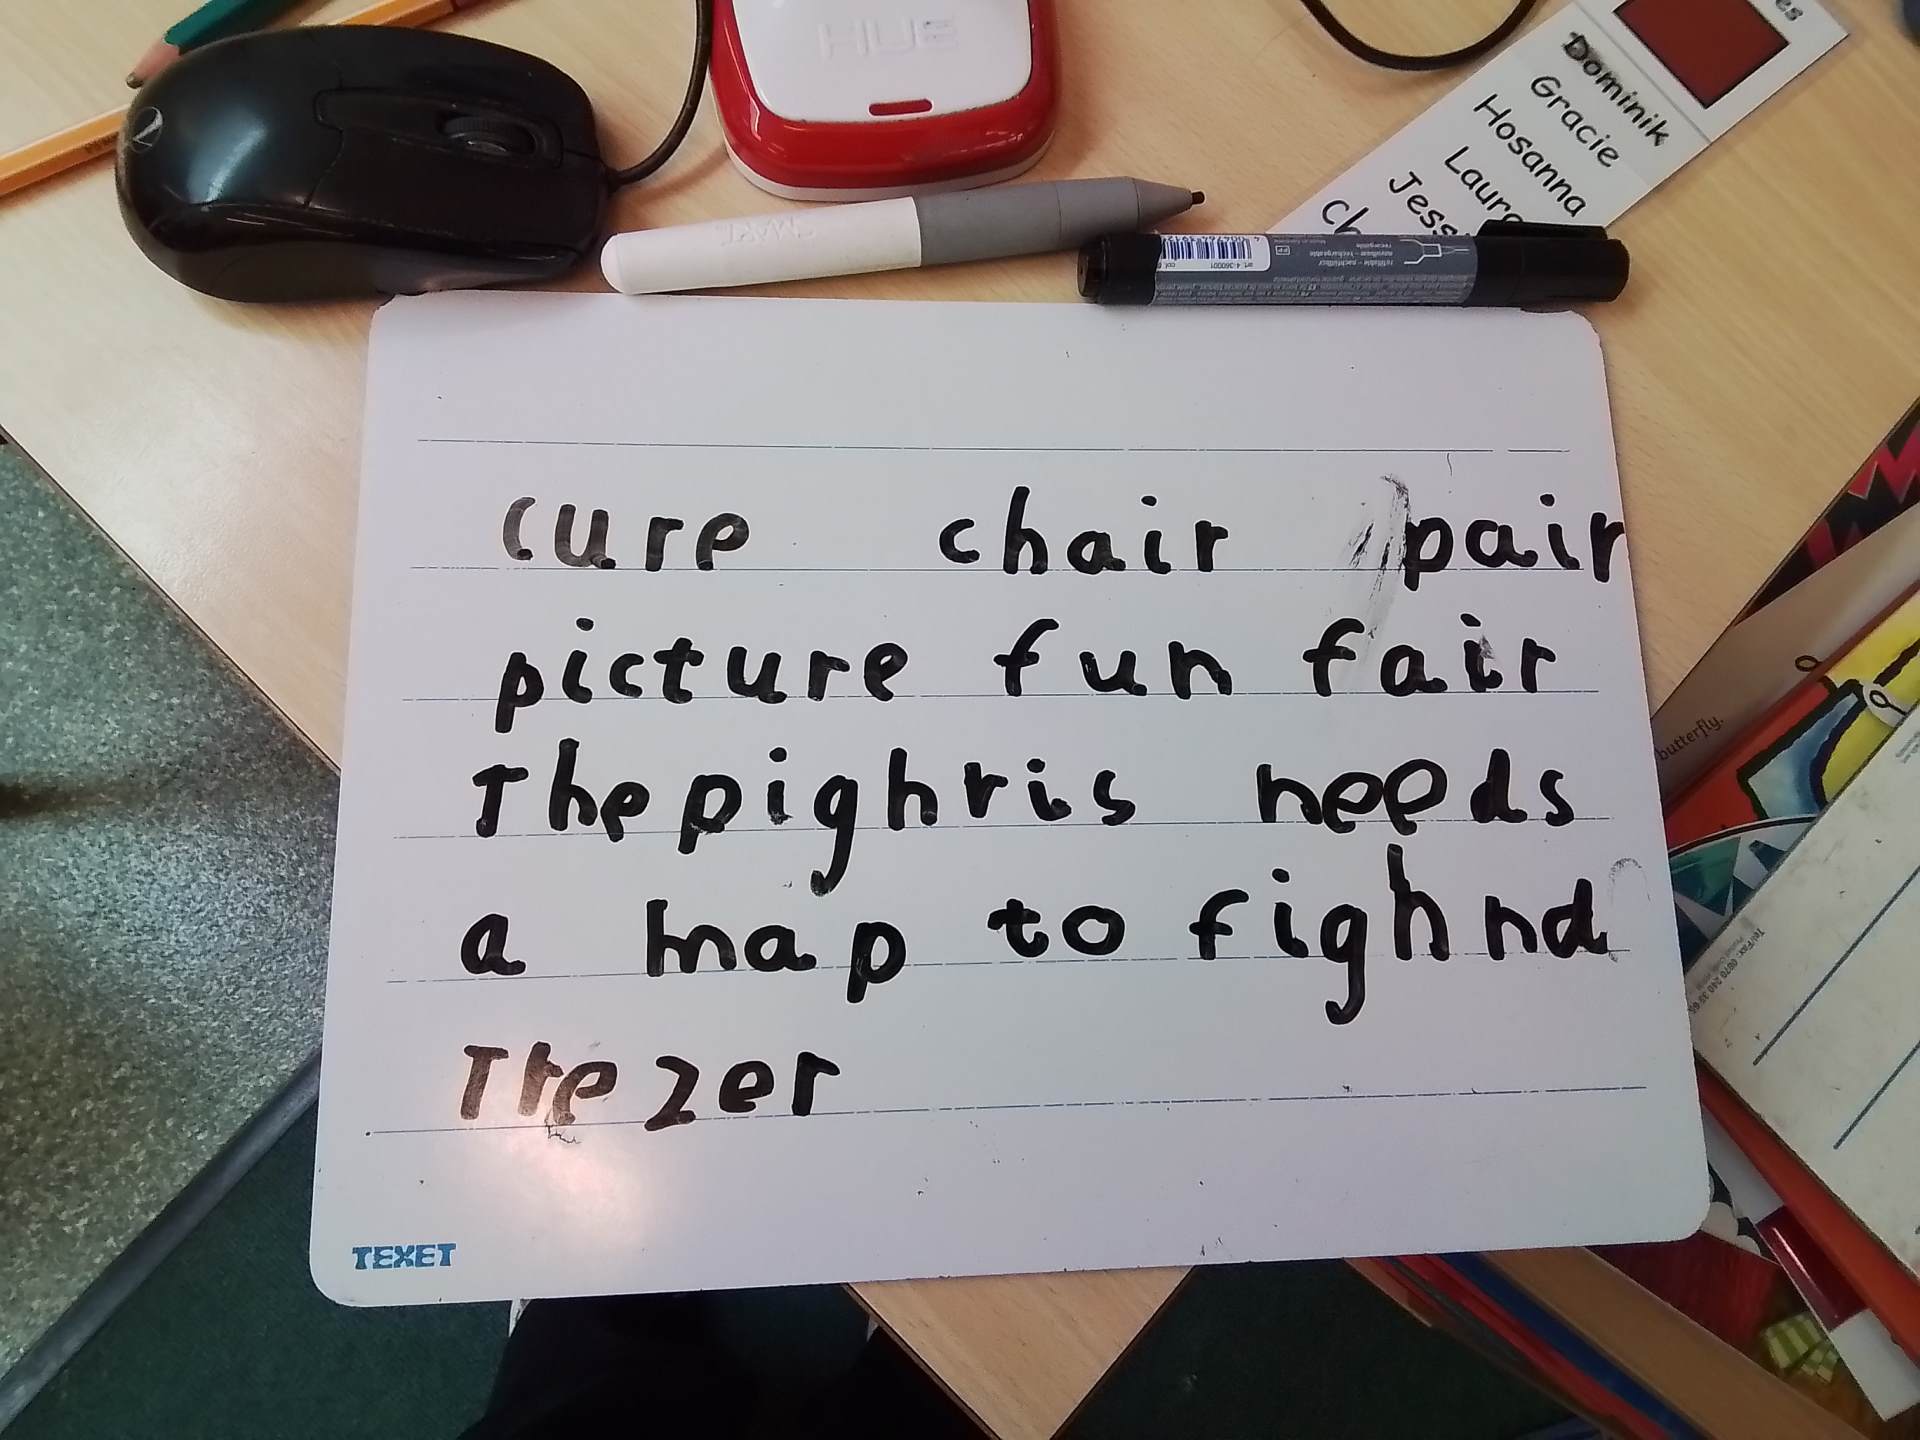 HUE
es
Dominik
Gracie
Hosanna
Laur
Jess
ch
SMART
cure chair pair
picture fun fair
The pighris needs
a map to fighnd
Trezer
butterfly.
TEXET